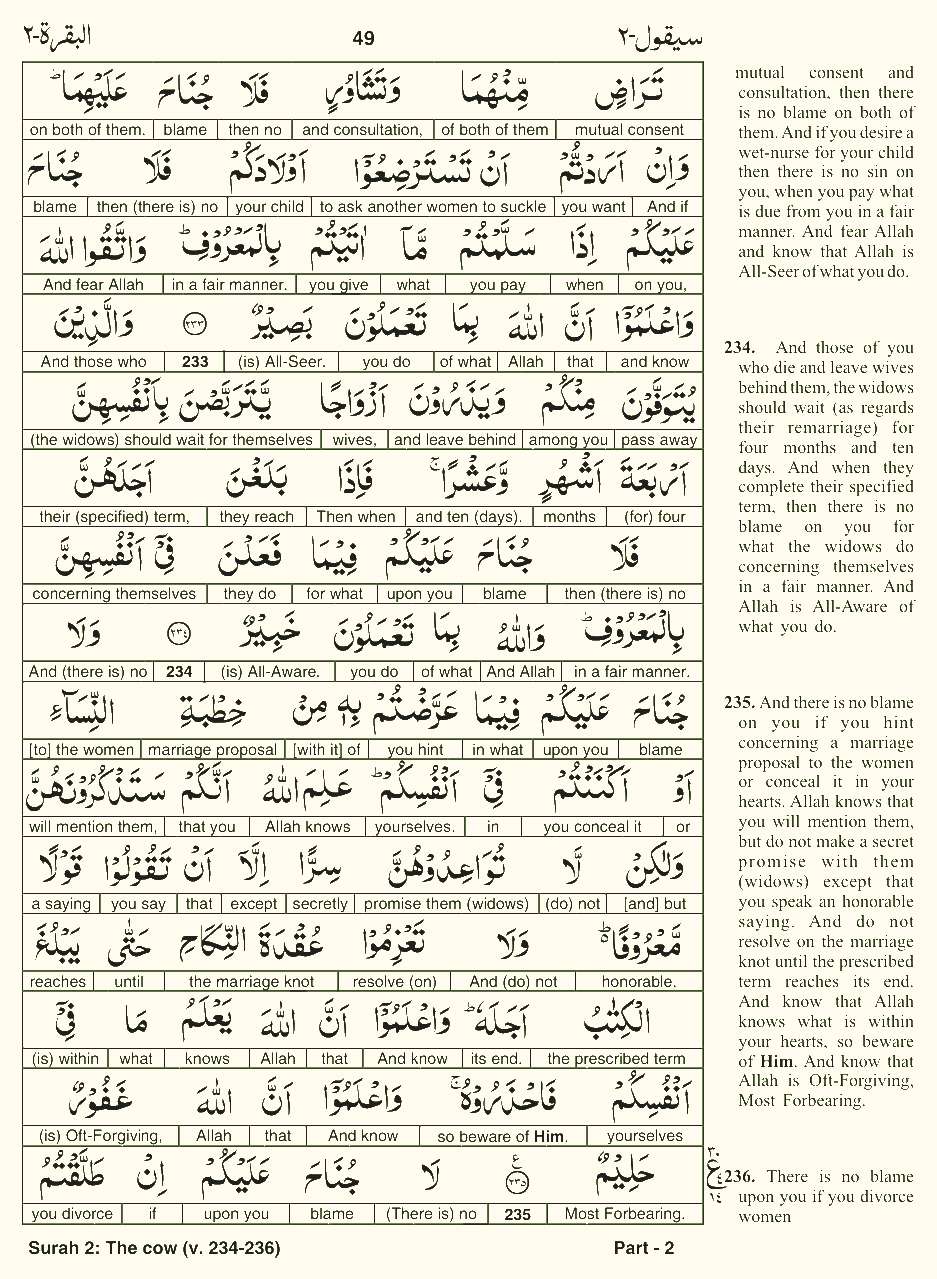 البقرة-٢ 49 سيقول-٢
تَرَاضٍ مِّنْهُمَا وَتَشَاوُرٍ فَلَا جُنَاحَ عَلَيْهِمَا ؕ
on both of them. | blame | then no | and consultation, | of both of them | mutual consent
وَاِنْ اَرَدْتُّمْ اَنْ تَسْتَرْضِعُوْۤا اَوْلَادَكُمْ فَلَا جُنَاحَ
blame | then (there is) no | your child | to ask another women to suckle | you want | And if
عَلَيْكُمْ اِذَا سَلَّمْتُمْ مَّاۤ اٰتَيْتُمْ بِالْمَعْرُوْفِ ؕ وَاتَّقُوا اللّٰهَ
And fear Allah | in a fair manner. | you give | what | you pay | when | on you,
وَاعْلَمُوْۤا اَنَّ اللّٰهَ بِمَا تَعْمَلُوْنَ بَصِيْرٌ ٢٣٣ وَالَّذِيْنَ
And those who | 233 | (is) All-Seer. | you do | of what | Allah | that | and know
يُتَوَفَّوْنَ مِنْكُمْ وَيَذَرُوْنَ اَزْوَاجًا يَّتَرَبَّصْنَ بِاَنْفُسِهِنَّ
(the widows) should wait for themselves | wives, | and leave behind | among you | pass away
اَرْبَعَةَ اَشْهُرٍ وَّعَشْرًا ۚ فَاِذَا بَلَغْنَ اَجَلَهُنَّ
their (specified) term, | they reach | Then when | and ten (days). | months | (for) four
فَلَا جُنَاحَ عَلَيْكُمْ فِيْمَا فَعَلْنَ فِيْۤ اَنْفُسِهِنَّ
concerning themselves | they do | for what | upon you | blame | then (there is) no
بِالْمَعْرُوْفِ ؕ وَاللّٰهُ بِمَا تَعْمَلُوْنَ خَبِيْرٌ ٢٣٤ وَلَا
And (there is) no | 234 | (is) All-Aware. | you do | of what | And Allah | in a fair manner.
جُنَاحَ عَلَيْكُمْ فِيْمَا عَرَّضْتُمْ بِهٖ مِنْ خِطْبَةِ النِّسَآءِ
[to] the women | marriage proposal | [with it] of | you hint | in what | upon you | blame
اَوْ اَكْنَنْتُمْ فِيْۤ اَنْفُسِكُمْ ؕ عَلِمَ اللّٰهُ اَنَّكُمْ سَتَذْكُرُوْنَهُنَّ
will mention them, | that you | Allah knows | yourselves. | in | you conceal it | or
وَلٰكِنْ لَّا تُوَاعِدُوْهُنَّ سِرًّا اِلَّاۤ اَنْ تَقُوْلُوْا قَوْلًا
a saying | you say | that | except | secretly | promise them (widows) | (do) not | [and] but
مَّعْرُوْفًا ؕ وَلَا تَعْزِمُوْا عُقْدَةَ النِّكَاحِ حَتّٰى يَبْلُغَ
reaches | until | the marriage knot | resolve (on) | And (do) not | honorable.
الْكِتٰبُ اَجَلَهٗ ؕ وَاعْلَمُوْۤا اَنَّ اللّٰهَ يَعْلَمُ مَا فِيْۤ
(is) within | what | knows | Allah | that | And know | its end. | the prescribed term
اَنْفُسِكُمْ فَاحْذَرُوْهُ ۚ وَاعْلَمُوْۤا اَنَّ اللّٰهَ غَفُوْرٌ
(is) Oft-Forgiving, | Allah | that | And know | so beware of Him. | yourselves
حَلِيْمٌ ٢٣٥ ع لَا جُنَاحَ عَلَيْكُمْ اِنْ طَلَّقْتُمُ
you divorce | if | upon you | blame | (There is) no | 235 | Most Forbearing.
٣٠
ع
٤
١٤
mutual consent and
consultation, then there
is no blame on both of
them. And if you desire a
wet-nurse for your child
then there is no sin on
you, when you pay what
is due from you in a fair
manner. And fear Allah
and know that Allah is
All-Seer of what you do.
234. And those of you
who die and leave wives
behind them, the widows
should wait (as regards
their remarriage) for
four months and ten
days. And when they
complete their specified
term, then there is no
blame on you for
what the widows do
concerning themselves
in a fair manner. And
Allah is All-Aware of
what you do.
235. And there is no blame
on you if you hint
concerning a marriage
proposal to the women
or conceal it in your
hearts. Allah knows that
you will mention them,
but do not make a secret
promise with them
(widows) except that
you speak an honorable
saying. And do not
resolve on the marriage
knot until the prescribed
term reaches its end.
And know that Allah
knows what is within
your hearts, so beware
of Him. And know that
Allah is Oft-Forgiving,
Most Forbearing.
236. There is no blame
upon you if you divorce
women
Surah 2: The cow (v. 234-236) Part - 2